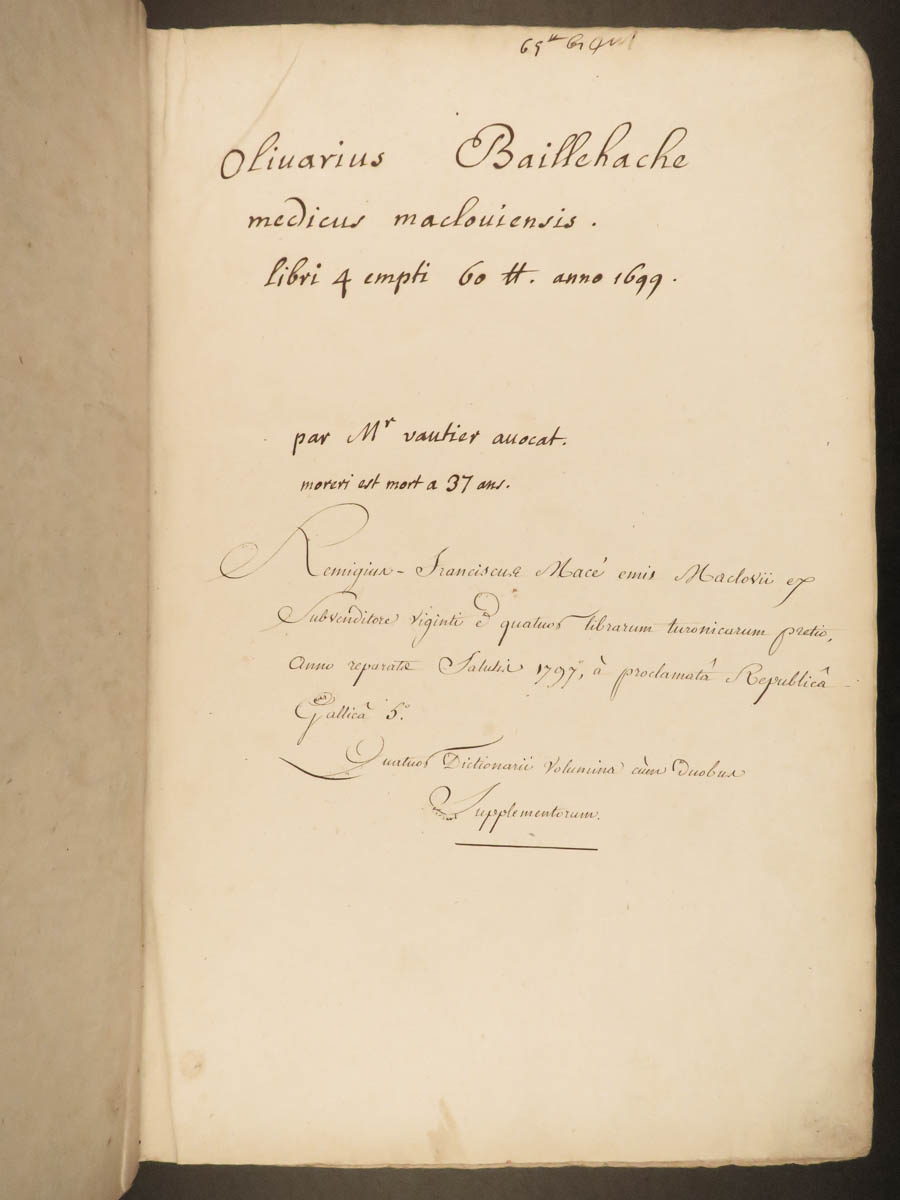 65 ₶
Olivarius Baillehache
medicus maclouiensis.
libri 4 empti 60 ₶. anno 1699.
par Mr vautier auocat.
moreri est mort a 37 ans.
Remigius-Franciscus Macé emis Maclovii ex
Subvenditore viginti & quatuor librarum turonicarum pretio,
Anno reparatæ Salutis 1797, à proclamatâ Republicâ
Gallicâ 5.º
Quatuor Dictionarii Volumina cùm duobus
Supplementorum.